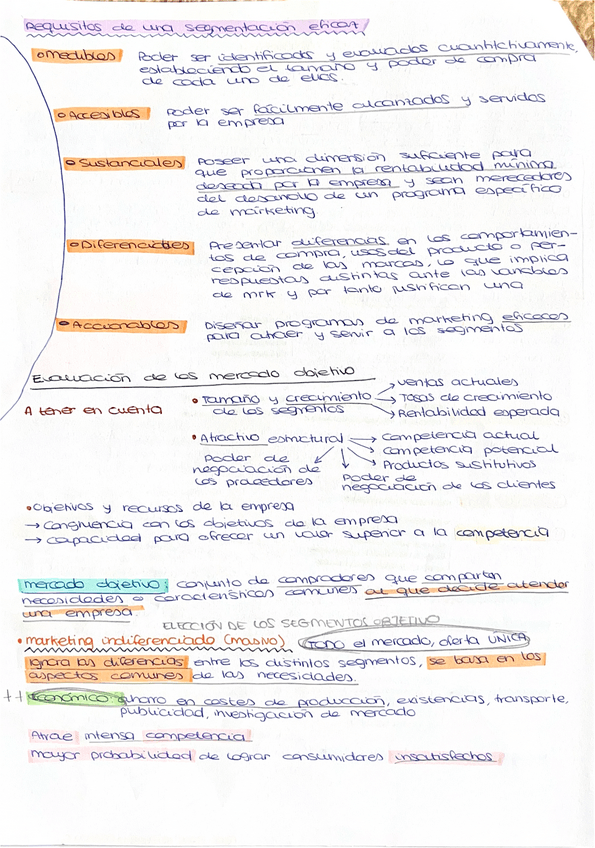 Requisitos de una segmentación eficaz
• Medibles Poder ser identificados y evaluados cuantitativamente,
estableciendo el tamaño y poder de compra
de cada uno de ellos.
• Accesibles Poder ser fácilmente alcanzados y servidos
por la empresa
• Sustanciales Poseer una dimensión suficiente para
que proporcionen la rentabilidad mínima
deseada por la empresa y sean merecedores
del desarrollo de un programa específico
de marketing.
• Diferenciables Presentar diferencias en los comportamien-
tos de compra, usos del producto o per-
cepción de las marcas, lo que implica
respuestas distintas ante las variables
de mrk y por tanto justifican una
• Accionables Diseñar programas de marketing eficaces
para atraer y servir a los segmentos
Evaluación de los mercado objetivo
A tener en cuenta
• Tamaño y crecimiento de los segmentos
→ Ventas actuales
→ Tasas de crecimiento
→ Rentabilidad esperada
• Atractivo estructural
→ Competencia actual
→ Competencia potencial
→ Productos sustitutivos
Poder de
negociación de
los proveedores
Poder de
negociación de los clientes
• Objetivos y recursos de la empresa
→ Congruencia con los objetivos de la empresa
→ Capacidad para ofrecer un valor superior a la competencia
Mercado objetivo: conjunto de compradores que comparten
necesidades o características comunes al que decide atender
una empresa.
ELECCIÓN DE LOS SEGMENTOS OBJETIVO
• Marketing indiferenciado (masivo) TODO el mercado, oferta ÚNICA
Ignora las diferencias entre los distintos segmentos, se basa en los
aspectos comunes de las necesidades.
++ Económico: ahorro en costes de producción, existencias, transporte,
publicidad, investigación de mercado
Atrae intensa competencia
Mayor probabilidad de lograr consumidores insatisfechos